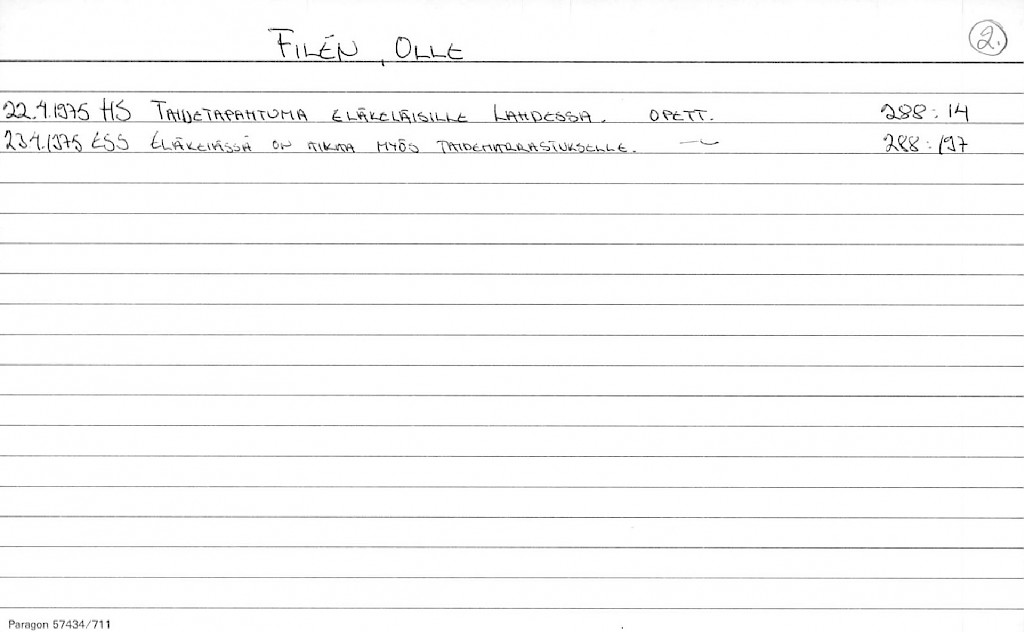 FILÉN, OLLE
2.
22.4.1975 HS TAIDETAPAHTUMA ELÄKELÄISILLE LAHDESSA. OPETT. 288:14
23.4.1975 ESS ELÄKEIÄSSÄ ON AIKAA MYÖS TAIDEHARRASTUKSELLE. —〃— 288:197
Paragon 57434/711